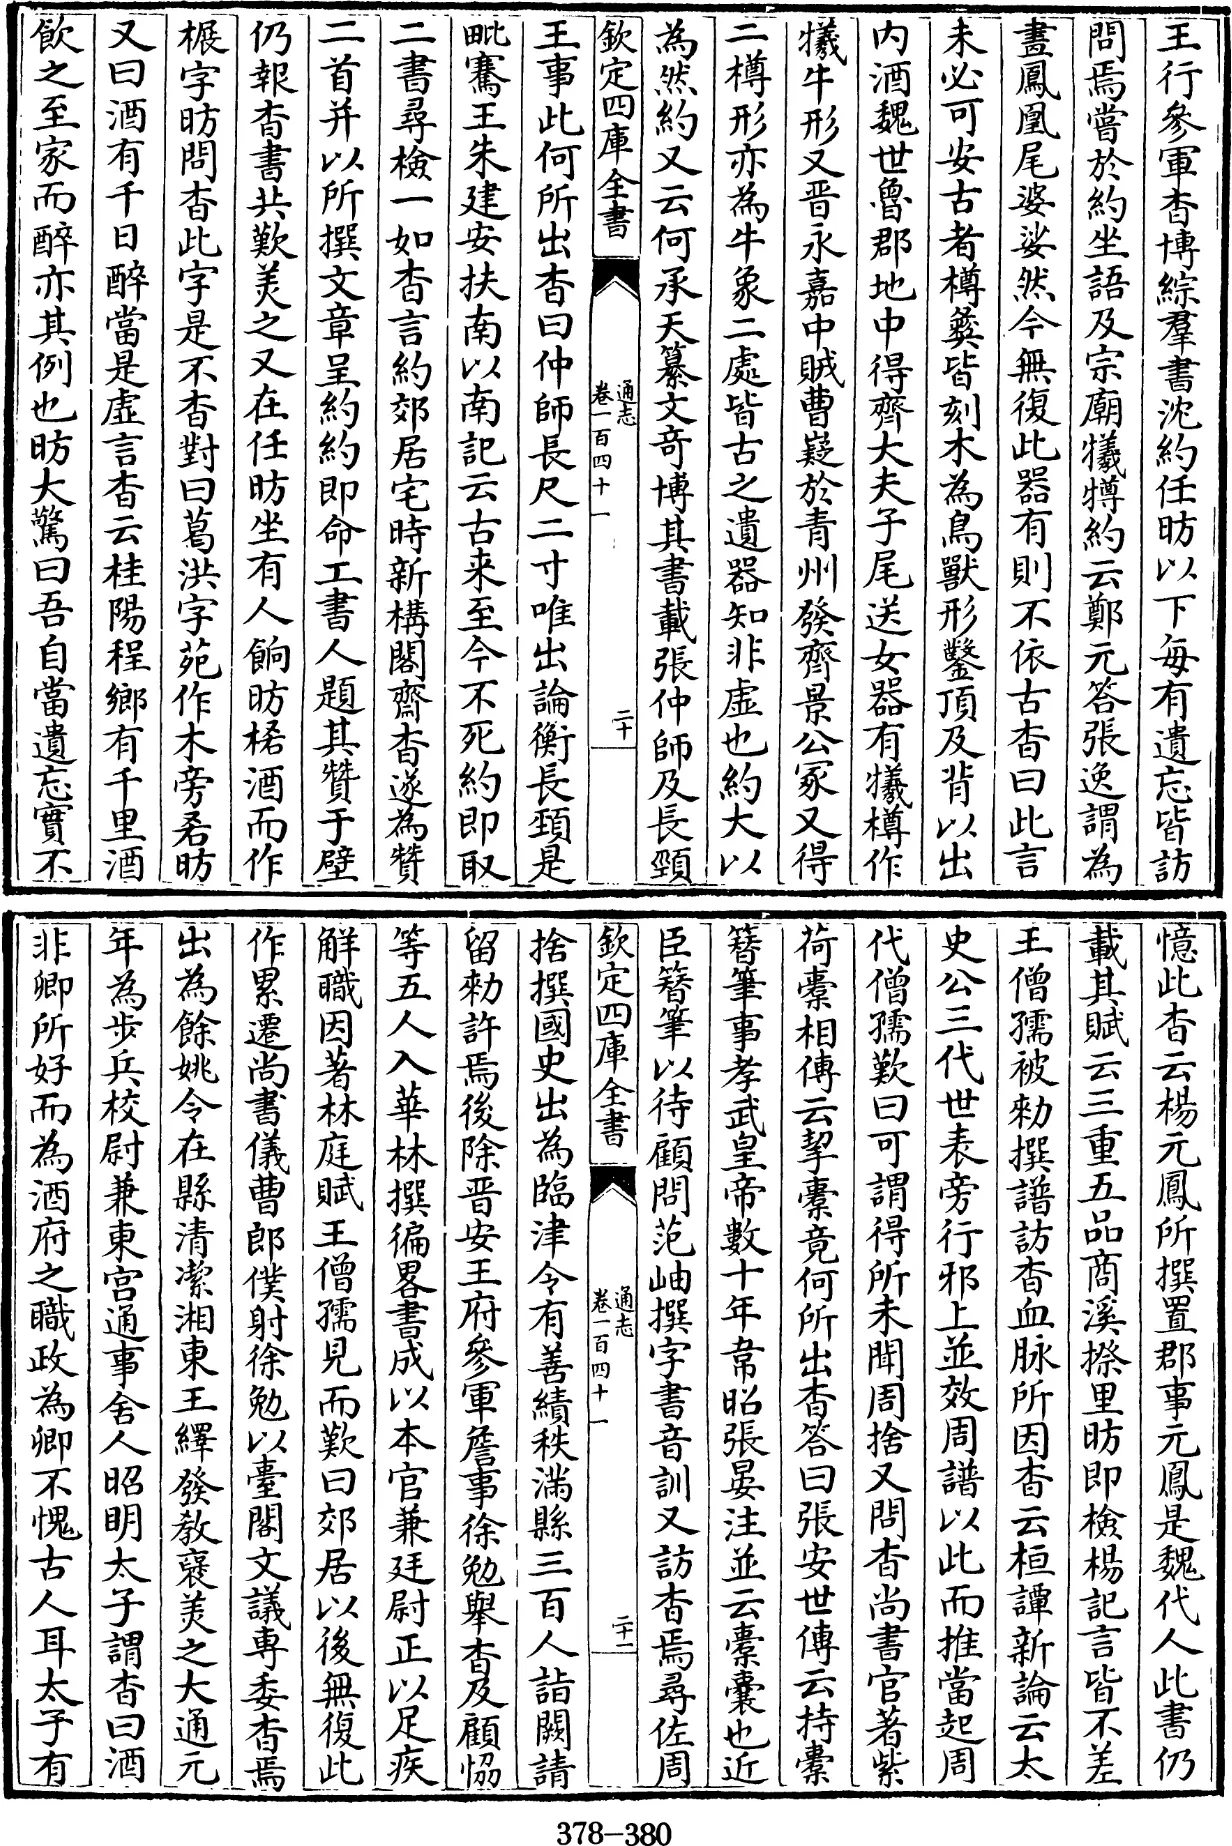 王行參軍杳博綜羣書沈約任昉以下每有遺忘皆訪
問焉嘗於約坐語及宗廟犧樽約云鄭元答張逸謂為
畫鳳凰尾婆娑然今無復此器有則不依古杳曰此言
未必可安古者樽彝皆刻木為鳥獸形鑿頂及背以出
内酒魏世魯郡地中得齊大夫子尾送女器有犧樽作
犧牛形又晋永嘉中賊曹嶷於青州發齊景公冢又得
二樽形亦為牛象二處皆古之遺器知非虚也約大以
為然約又云何承天纂文奇博其書載張仲師及長頸
欽定四庫全書
通志
卷一百四十一
二十
王事此何所出杳曰仲師長尺二寸唯出論衡長頚是
毗騫王朱建安扶南以南記云古来至今不死約即取
二書尋檢一如杳言約郊居宅時新構閣齋杳遂為贊
二首并以所撰文章呈約約即命工書人題其贊于壁
仍報杳書共歎美之又在任昉坐有人餉昉楉酒而作
榐字昉問杳此字是不杳對曰葛洪字苑作木旁㕤昉
又曰酒有千日醉當是虚言杳云桂陽程鄉有千里酒
飲之至家而醉亦其例也昉大驚曰吾自當遺忘實不
憶此杳云楊元鳳所撰置郡事元鳳是魏代人此書仍
載其賦云三重五品商溪摖里昉即檢楊記言皆不差
王僧孺被勑撰譜訪杳血脉所因杳云桓譚新論云太
史公三代世表旁行邪上並效周譜以此而推當起周
代僧孺歎曰可謂得所未聞周捨又問杳尚書官著紫
荷橐相傳云挈橐竟何所出杳答曰張安世傳云持橐
簪筆事孝武皇帝數十年韋昭張晏注並云橐囊也近
臣簪筆以待顧問范岫撰字書音訓又訪杳焉尋佐周
欽定四庫全書
通志
卷一百四十一
二十一
捨撰國史出為臨津令有善績秩滿縣三百人詣闕請
留勑許焉後除晋安王府參軍詹事徐勉舉杳及顧協
等五人入華林撰徧畧書成以本官兼廷尉正以足疾
解職因著林庭賦王僧孺見而歎曰郊居以後無復此
作累遷尚書儀曹郎僕射徐勉以臺閣文議專委杳焉
出為餘姚令在縣清潔湘東王繹發教襃美之大通元
年為步兵校尉兼東宫通事舍人昭明太子謂杳曰酒
非卿所好而為酒府之職政為卿不愧古人耳太子有
378-380